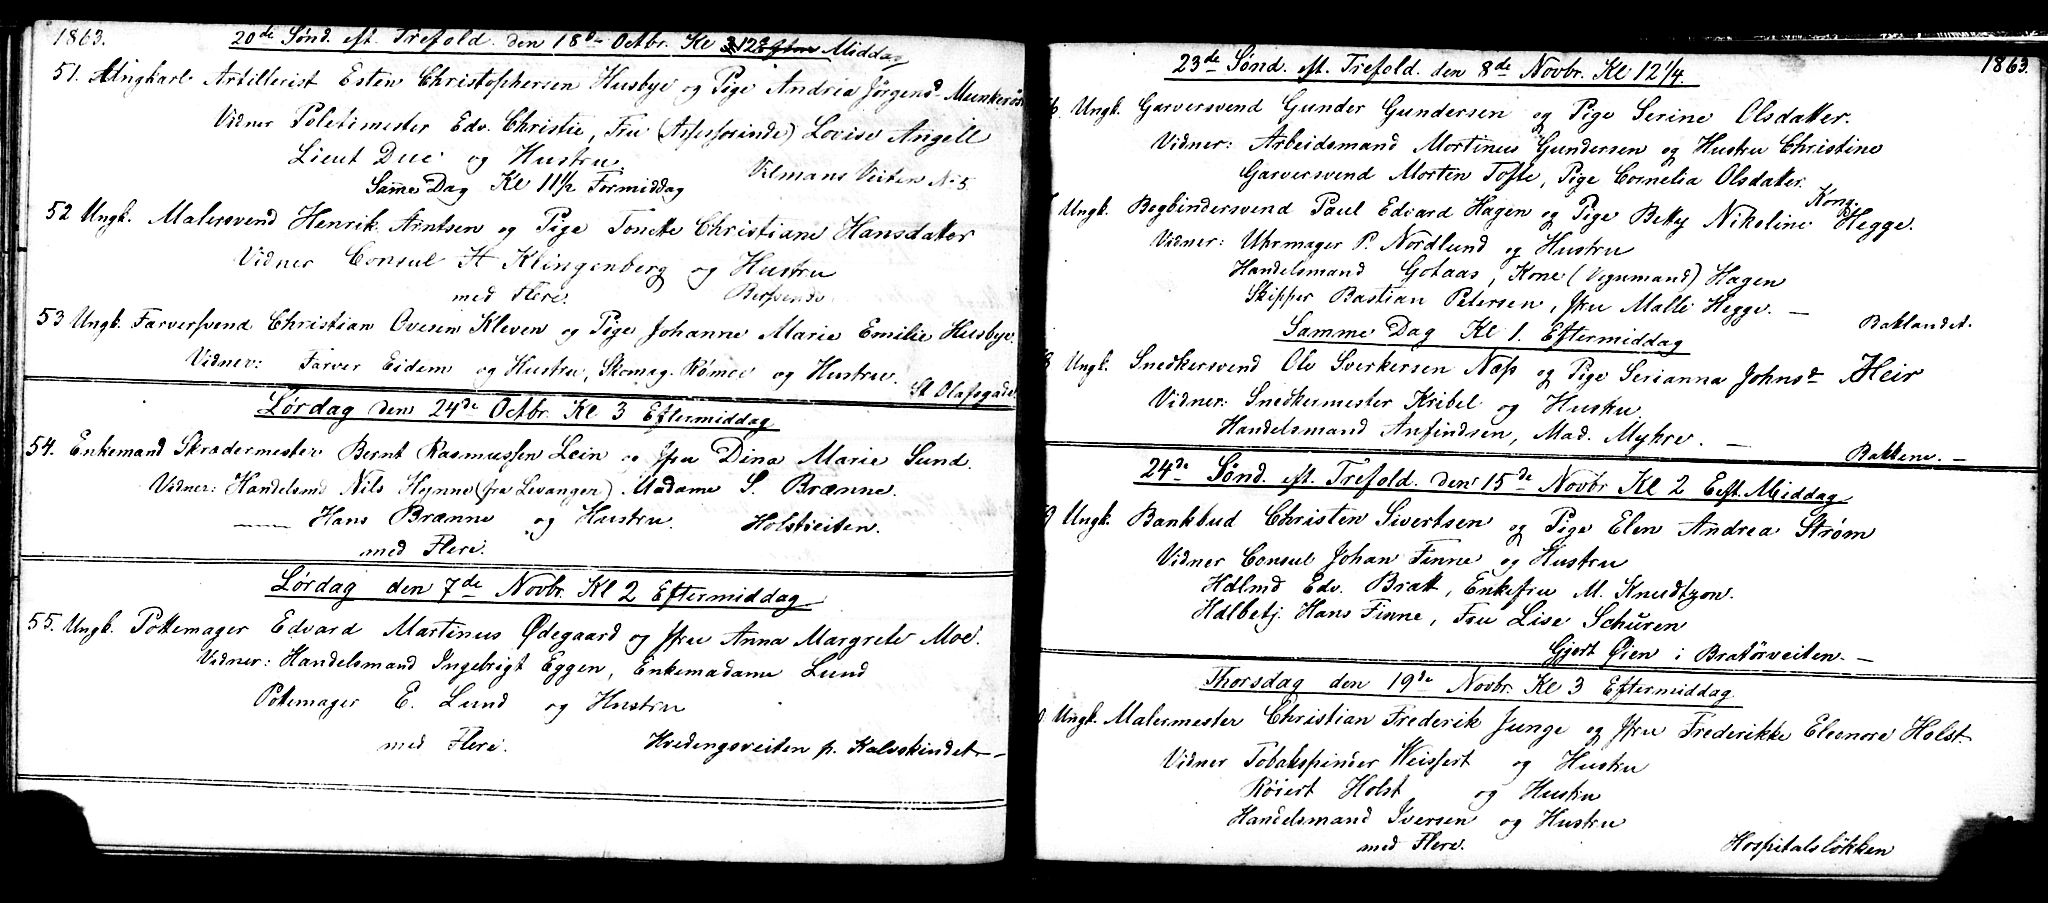 1863.
20de Sønd. eft. Trefold. den 18de Octbr. Kl 12 Middag
51. Ungkarl Artillerist Esten Christophersen Husbye og Pige Andria Jørgend. Munkerøs
Vidner Poletimester Edv. Christie, Fru (Asfesorinde) Lovise Angell
Lieut Due og Hustru Vilmans Veiten N. 5
Samme Dag Kl 11 1/2 Formiddag
52 Ungk. Malersvend Henrik Arntsen og Pige Christiane Hansdatter
Vidner Consul H Klingenberg og Hustru
med Flere.
53 Ungk. Farversvend Christian Ovesen Kleven og Pige Johanne Marie Emilie Husbye.
Vidner: Farver Eidem og Hustru, Skomag. Rømoe og Hustru.
St Olafsgade
Lørdag den 24de Octbr. Kl 3 Eftermiddag
54. Enkemand Skrædermester Bernt Rasmussen Lein og Jfru Dina Marie Sund.
Vidner: Handelsmd Nils Hynne (fra Levanger), Madame S. Brænne.
—— Hans Brænne og Hustru. Holstveiten.
med Flere.
Lørdag den 7de Novbr. Kl 2 Eftermiddag
55. Ungk. Pottemager Edvard Martinus Ødegaard og Jfru Anna Margrete Moe.
Vidner: Handelsmand Ingebrigt Eggen, Enkemadame Lund
Pottemager E. Lund og Hustru
med Flere. Hredengsveiten p. Kalvskindet —
1863.
23de Sønd. eft. Trefold. den 8de Novbr. Kl 12 1/4.
6 Ungk. Garversvend Gunder Gundersen og Pige Serine Olsdatter.
Vidner: Arbeidsmand Mortinus Gundersen og Hustru Christine
Garversvend Morten Tofte, Pige Cornelia Olsdatter.
Ungk. Bogbindersvend Paul Edvard Hagen og Pige Betty Nikoline Kong. Hegge.
Vidner: Uhrmager P. Nordlund og Hustru
Handelsmand Gotaas, Kone (Vognmand) Hagen
Skipper Bastian Petersen, Jfru Malli Hegge. —
Baklandet.
Samme Dag Kl 1. Eftermiddag
8 Ungk. Snedkersvend Ole Sverkersen Næss og Pige Serianna Johnsd. Heir
Vidner: Snedkermester Kribel og Hustru.
Handelsmand Anfindsen, Mad. Myhre. —
Bakkene. —
24de Sønd. eft. Trefold. den 15de Novbr Kl 2 Eft. Middag
9 Ungk. Bankbud Christen Sivertsen og Pige Elen Andrea Strøm
Vidner Consul Johan Finne og Hustru
Hdlmd Edv. Bratt, Enkefru M. Knudtzon.
Hdlbetj. Hans Finne, Fru Lise Schüren
Gjert Øien i Bratørveiten. —
Thorsdag den 19de Novbr. Kl 3 Eftermiddag.
0 Ungk. Malermester Christian Frederik Junge og Jfru Frederikke Eleonore Holst.
Vidner Tobakspinder Weissert og Hustru
Holst og Hustru
Handelsmand Iversen og Hustru
med Flere. Hospitalsløkken